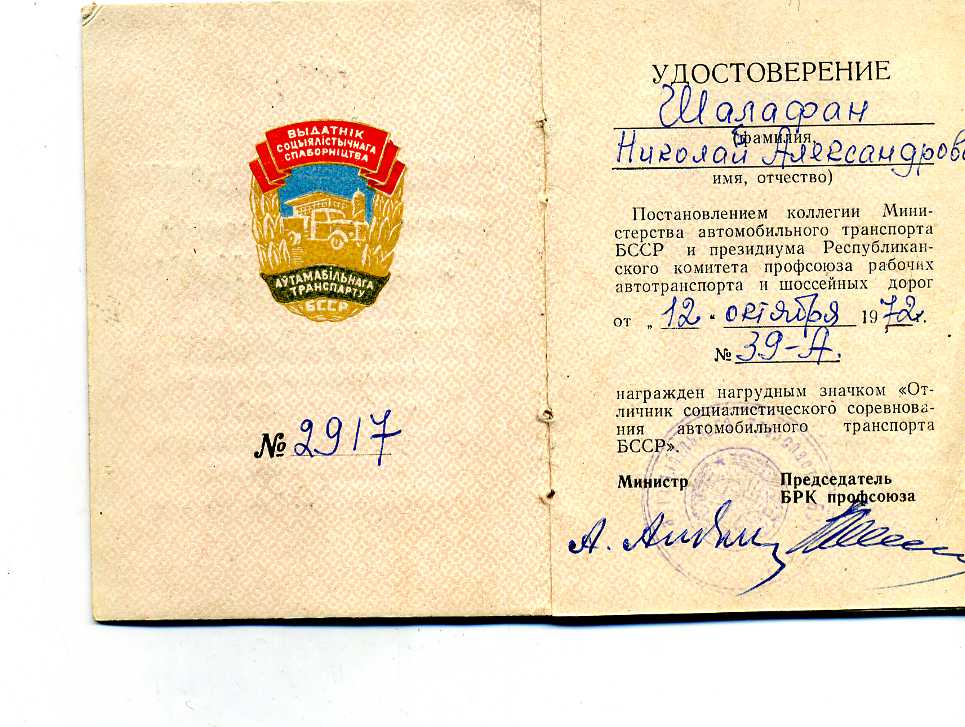 ВЫДАТНІК
СОЦЫЯЛІСТЫЧНАГА
СПАБОРНІЦТВА
АЎТАМАБІЛЬНАГА
ТРАНСПАРТУ
БССР
№ 2917
УДОСТОВЕРЕНИЕ
Шалафан
(фамилия,
Николай Александров
имя, отчество)
Постановлением коллегии Мини-
стерства автомобильного транспорта
БССР и президиума Республикан-
ского комитета профсоюза рабочих
автотранспорта и шоссейных дорог
от „12“ октября 1972г.
№ 39-А.
награжден нагрудным значком «От-
личник социалистического соревнова-
ния автомобильного транспорта
БССР».
Министр
Председатель
БРК профсоюза